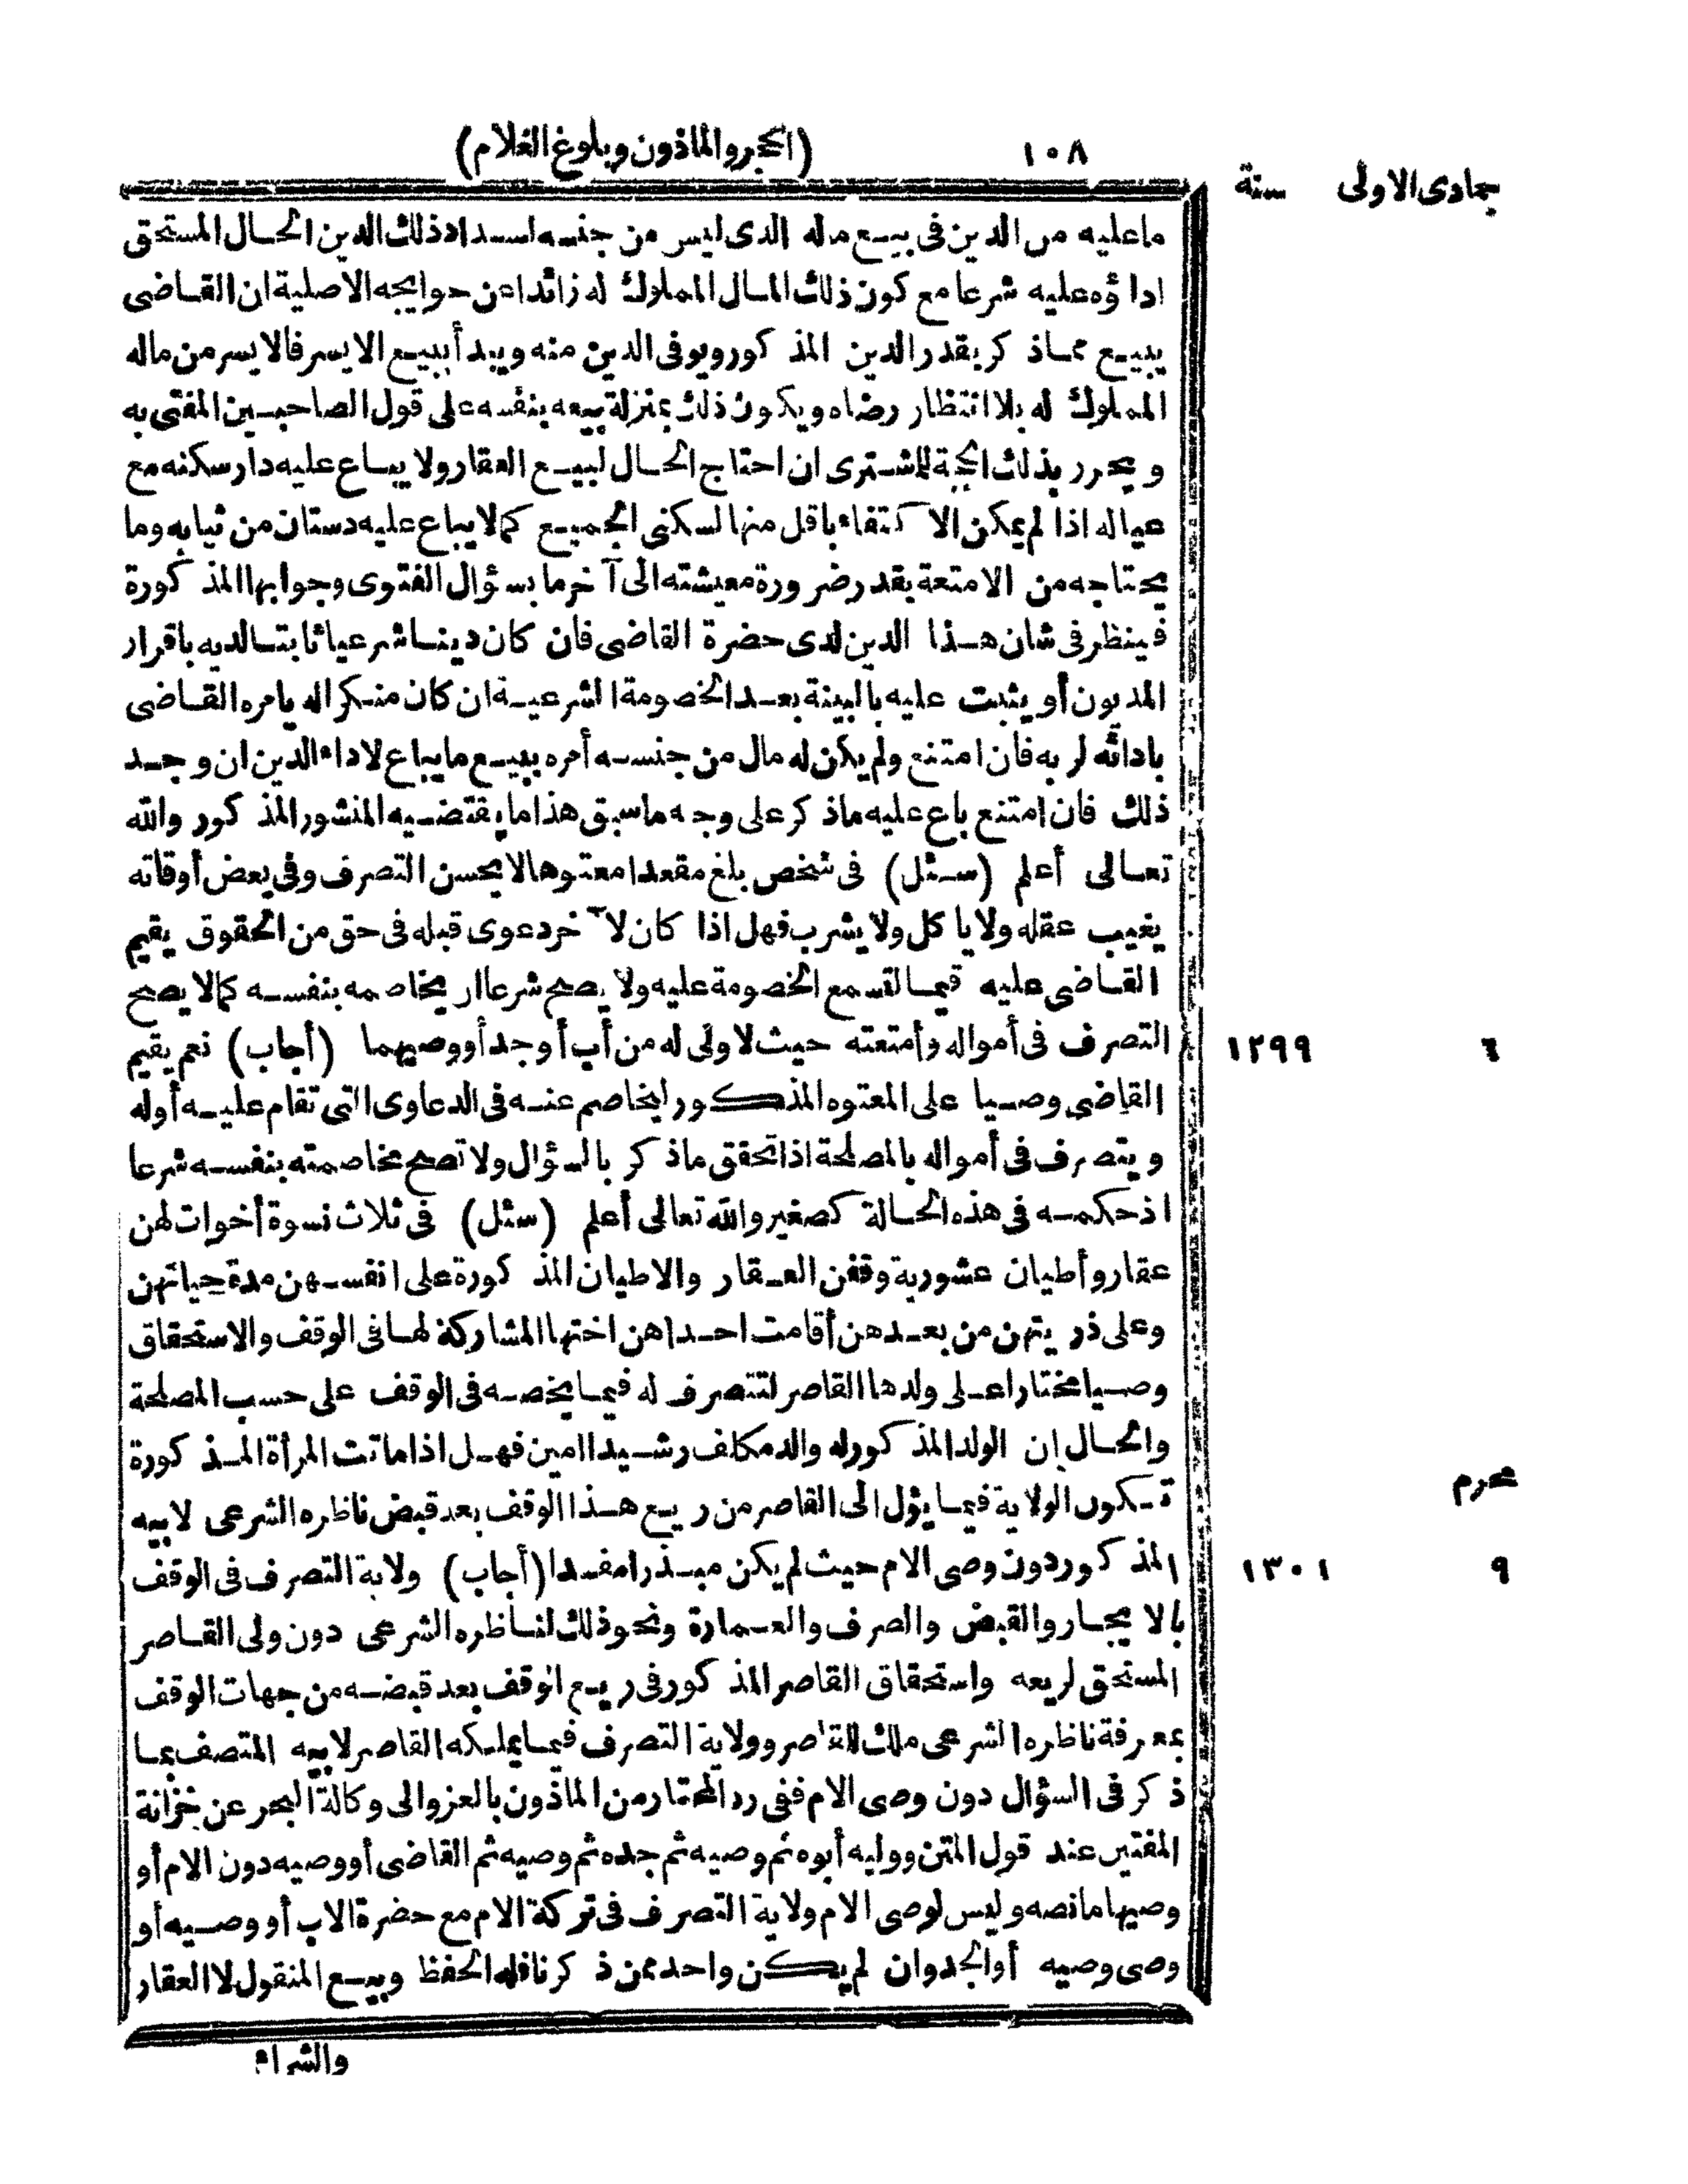 جمادى الاولى سنة
١٠٨ (الحجر والماذون وبلوغ الغلام)
ما عليه من الدين فى بيع ماله الذى ليس من جنسه لسداد ذلك الدين الحال المستحق
اداؤه عليه شرعا مع كون ذلك المال المملوك له زائدا عن حوايجه الاصلية ان القاضى
يبيع مما ذكر بقدر الدين المذكور ويوفى الدين منه ويبدأ ببيع الايسر فالايسر من ماله
المملوك له بلا انتظار رضاه ويكون ذلك بمنزلة بيعه بنفسه على قول الصاحبين المفتى به
ويحرر بذلك الحجة للمشترى ان احتاج الحال لبيع العقار ولا يباع عليه دار سكنه مع
عياله اذا لم يمكن الاكتفاء باقل منها لسكنى الجميع كما لا يباع عليه دستان من ثيابه وما
يحتاجه من الامتعة بقدر ضرورة معيشته الى آخر ما بسؤال الفتوى وجوابها المذكورة
فينظر فى شان هذا الدين لدى حضرة القاضى فان كان دينا شرعيا ثابتا لديه باقرار
المديون أو يثبت عليه بالبينة بعد الخصومة الشرعية ان كان منكرا له يامره القاضى
بادائه لربه فان امتنع ولم يكن له مال من جنسه أمره ببيع ما يباع لاداء الدين ان وجد
ذلك فان امتنع باع عليه ماذكر على وجه ما سبق هذا ما يقتضيه المنشور المذكور والله
تعالى أعلم (سئل) فى شخص بلغ مقعدا معتوها لا يحسن التصرف وفى بعض أوقاته
يغيب عقله ولا ياكل ولا يشرب فهل اذا كان لآخر دعوى قبله فى حق من الحقوق يقيم
القاضى عليه قيما لتسمع الخصومة عليه ولا يصح شرعا ان يخاصمه بنفسه كما لا يصح
التصرف فى أمواله وأمتعته حيث لا ولى له من أب أو جد أو وصيهما (أجاب) نعم يقيم ١٢٩٩ ٦
القاضى وصيا على المعتوه المذكور ليخاصم عنه فى الدعاوى التى تقام عليه أوله
ويتصرف فى أمواله بالمصلحة اذا تحقق ماذكر بالسؤال ولا تصح مخاصمته بنفسه شرعا
اذ حكمه فى هذه الحالة كصغير والله تعالى أعلم (سئل) فى ثلاث نسوة أخوات لهن
عقار وأطيان عشورية وقفن العقار والاطيان المذكورة على انفسهن مدة حياتهن
وعلى ذريتهن من بعدهن أقامت احداهن اختها المشاركة لها فى الوقف والاستحقاق
وصيا مختارا على ولدها القاصر لتتصرف له فيما يخصه فى الوقف على حسب المصلحة
والحال ان الولد المذكور له والد مكلف رشيدا امين فهل اذا ماتت المرأة المذكورة
محرم
تكون الولاية فيما يؤل الى القاصر من ريع هذا الوقف بعد قبض ناظره الشرعى لابيه
المذكور دون وصى الام حيث لم يكن مبذرا مفسدا (أجاب) ولاية التصرف فى الوقف ١٣٠١ ٩
بالايجار والقبض والصرف والعمارة ونحو ذلك لناظره الشرعى دون ولى القاصر
المستحق لريعه واستحقاق القاصر المذكور فى ريع الوقف بعد قبضه من جهات الوقف
بمعرفة ناظره الشرعى ملك للقاصر وولاية التصرف فيما يملكه القاصر لابيه المتصف بما
ذكر فى السؤال دون وصى الام ففى رد المحتار من الماذون بالعزو الى وكالة البحر عن خزانة
المفتين عند قول المتن ووليه أبوه ثم وصيه ثم جده ثم وصيه ثم القاضى أو وصيه دون الام أو
وصيها ما نصه وليس لوصى الام ولاية التصرف فى تركة الام مع حضرة الاب أو وصيه أو
وصى وصيه أو الجد وان لم يكن واحد ممن ذكرنا فله الحفظ وبيع المنقول لا العقار
والشراء